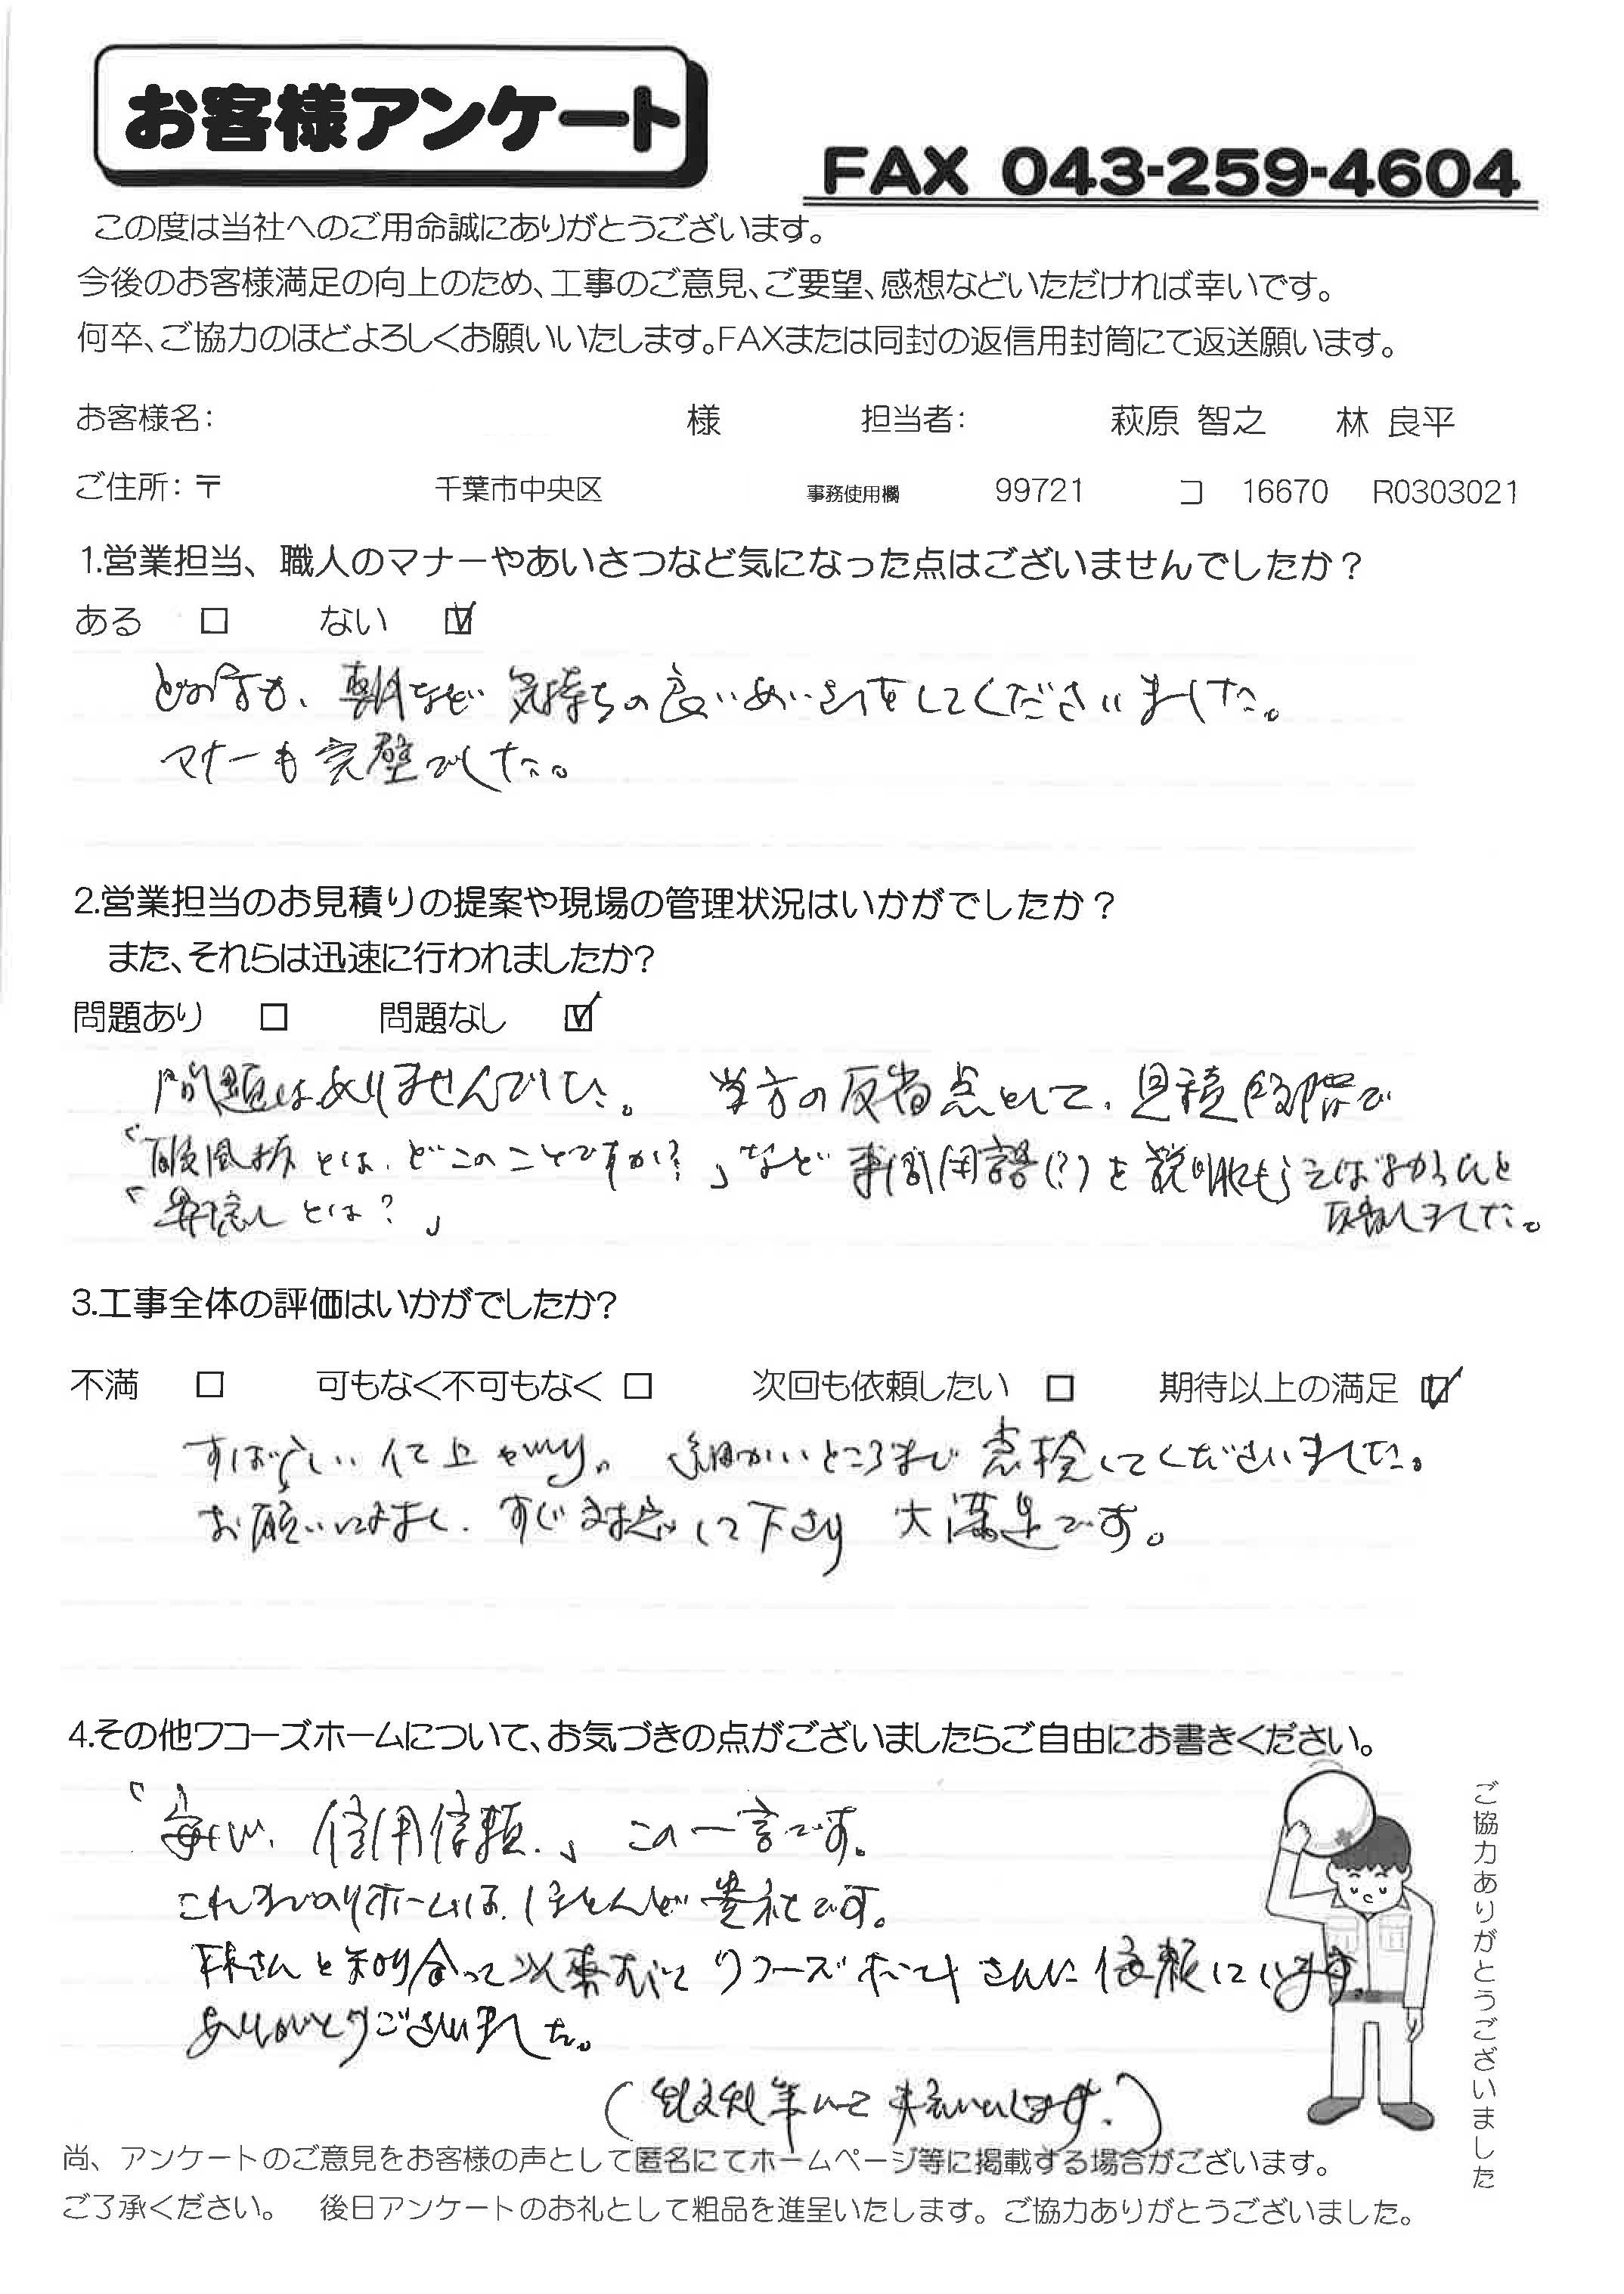 お客様アンケート
FAX 043-259-4604
この度は当社へのご用命誠にありがとうございます。
今後のお客様満足の向上のため、工事のご意見、ご要望、感想などいただければ幸いです。
何卒、ご協力のほどよろしくお願いいたします。FAXまたは同封の返信用封筒にて返送願います。
お客様名： 様 担当者： 萩原 智之 林 良平
ご住所：〒 千葉市中央区 事務使用欄 99721 コ 16670 R0303021
1.営業担当、職人のマナーやあいさつなど気になった点はございませんでしたか？
ある □ ない ☑
どの方も、朝など気持ちの良いあいさつをしてくださいました。
マナーも完璧でした。
2.営業担当のお見積りの提案や現場の管理状況はいかがでしたか？
また、それらは迅速に行われましたか？
問題あり □ 問題なし ☑
問題はありませんでした。 当方の反省点として、見積段階で
「破風板とは、どこのことですか？」など専門用語(？)を説明してもらえばよかったと
「鼻隠しとは？」
反省しました。
3.工事全体の評価はいかがでしたか？
不満 □ 可もなく不可もなく □ 次回も依頼したい □ 期待以上の満足 ☑
すばらしい仕上がり。 細かいところまで点検してくださいました。
お願いします、すぐ対応して下さり 大満足です。
4.その他ワコーズホームについて、お気づきの点がございましたらご自由にお書きください。
「安心、信用信頼。」 この一言です。
ほとんど貴社です。
林さんと知り合って以来すべてワコーズホームさんに依頼しています。
ありがとうございました。
尚、アンケートのご意見をお客様の声として匿名にてホームページ等に掲載する場合がございます。
ご了承ください。 後日アンケートのお礼として粗品を進呈いたします。ご協力ありがとうございました。
ご協力ありがとうございました